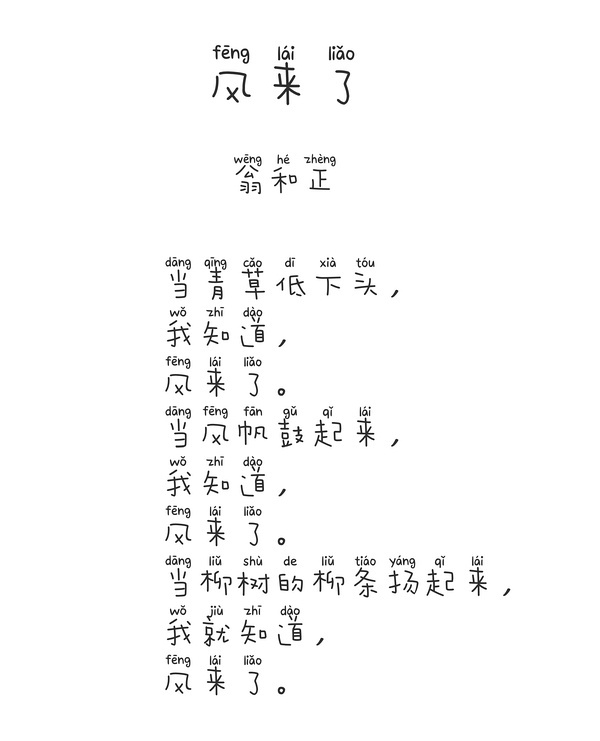 fēng lái liǎo
风来了
wēng hé zhèng
翁和正
dāng qīng cǎo dī xià tóu
当青草低下头，
wǒ zhī dào
我知道，
fēng lái liǎo
风来了。
dāng fēng fān gǔ qǐ lái
当风帆鼓起来，
wǒ zhī dào
我知道，
fēng lái liǎo
风来了。
dāng liǔ shù de liǔ tiáo yáng qǐ lái
当柳树的柳条扬起来，
wǒ jiù zhī dào
我就知道，
fēng lái liǎo
风来了。